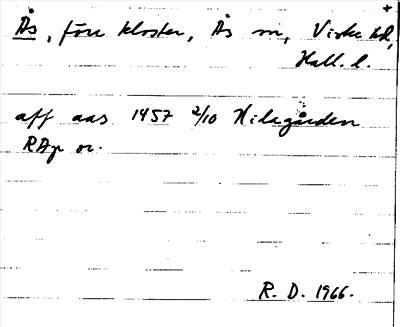 +
Ås, före kloster, Ås sn, Viske hd,
Hall. l.
aff aas 1457 2/10 Hilegården
RAp or.
R. D. 1966.